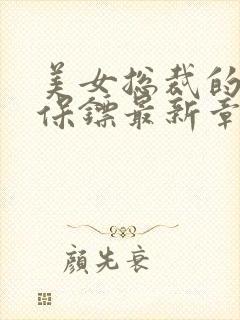 美女总裁的
保镖最新章
颜先衮